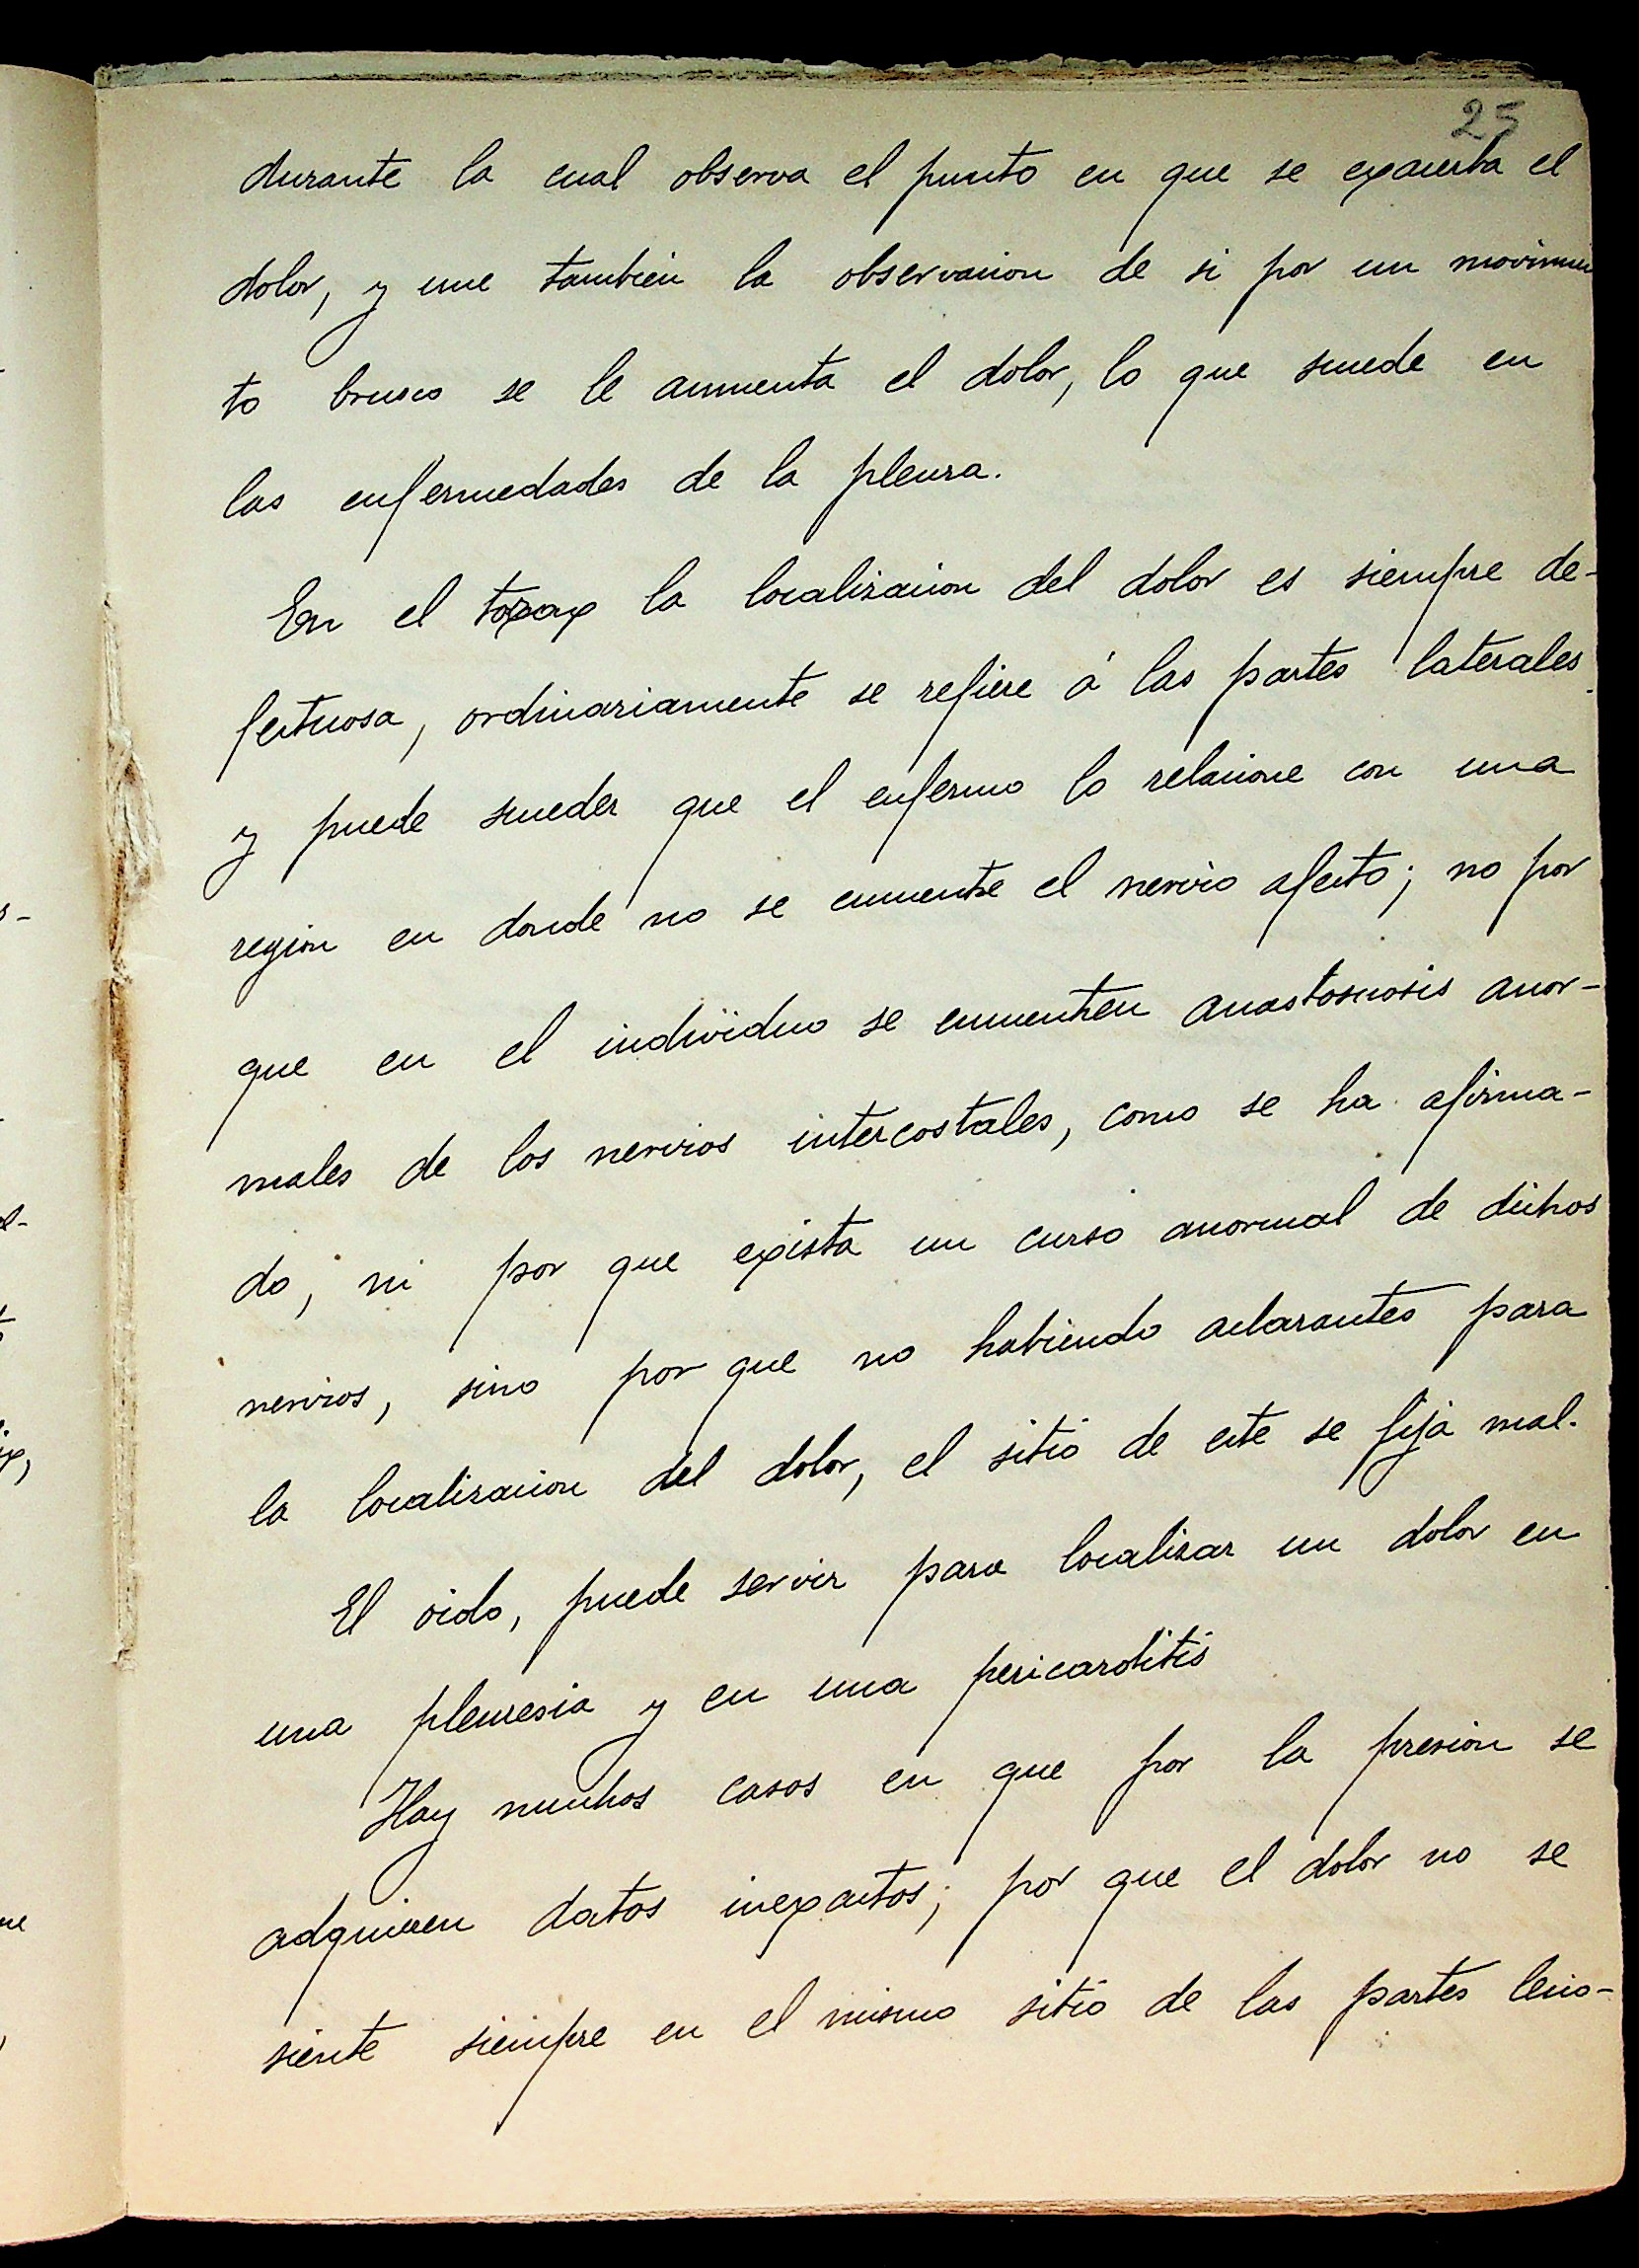 25
durante la cual observa el punto en que se exacerba el
dolor, y une tambien la observacion de si por un movimien
to brusco se le aumenta el dolor, lo que sucede en
las enfermedades de la pleura.
En el torax la localizacion del dolor es siempre de-
fectuosa, ordinariamente se refiere á las partes laterales
y puede suceder que el enfermo lo relacione con una
region en donde no se encuentre el nervio afecto; no por
que en el individuo se encuentren anastosmosis anor-
males de los nervios intercostales, como se ha afirma-
do, ni por que exista un curso anormal de dichos
nervios, sino por que no habiendo aclarantes para
la localizacion del dolor, el sitio de este se fija mal.
El oido, puede servir para localizar un dolor en
una pleuresia y en una pericarditis
Hay muchos casos en que por la presion se
adquieren datos inexactos; por que el dolor no se
siente siempre en el mismo sitio de las partes lecio-